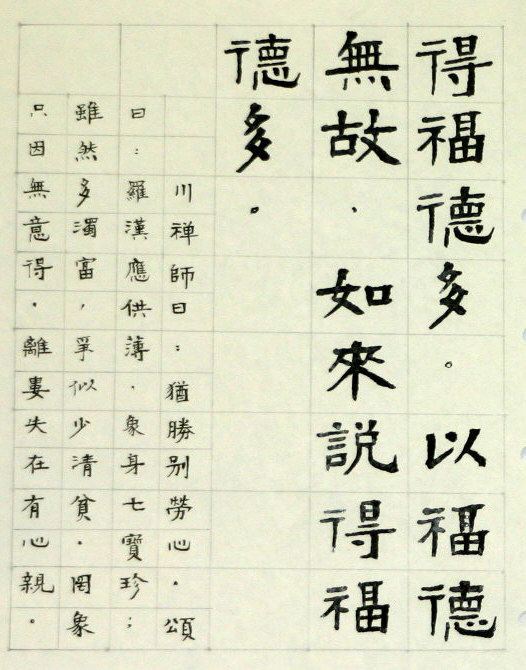 得福德多。以福德
無故、如來説得福
德多。
川禅師曰：猶勝別勞心。頌
曰：羅漢應供薄．象身七寶珍；
雖然多濁富，爭似少清貧．罔象
只因無意得．離婁失在有心親。